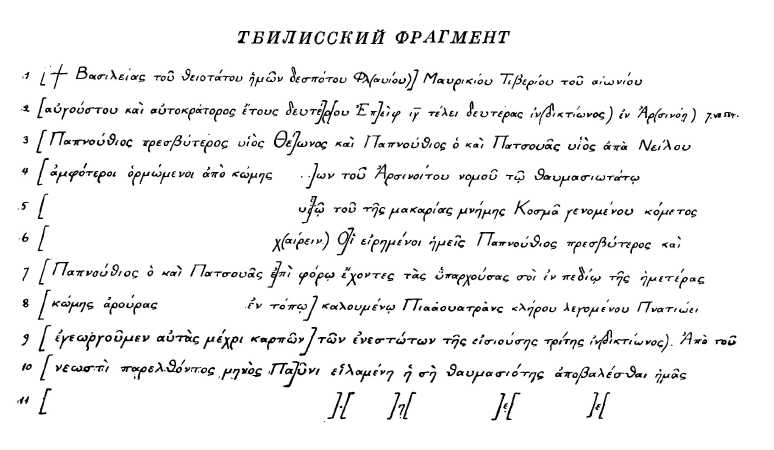 ТБИЛИССКИЙ ФРАГМЕНТ
1 [☩ Βασιλείας τοῦ θειοτάτου ἡμῶν δεσπότου Φλ(αυίου)] Μαυρικίου Τιβερίου τοῦ αἰωνίου
2 [αὐγούστου καὶ αὐτοκράτορος ἔτους δευτέρ]ου Ἐπεὶφ ιγ τέλει δευτέρας ἰν(δικτίωνος) ἐν Ἀρ(σινόῃ)
3 [Παπνούθιος πρεσβύτερος υἱὸς Θέ]ωνος καὶ Παπνούθιος ὁ καὶ Πατσουᾶς υἱὸς ἀπὰ Νείλου
4 [ἀμφότεροι ὁρμώμενοι ἀπὸ κώμης . .]ων τοῦ Ἀρσινοΐτου νομοῦ τῷ θαυμασιωτάτῳ
5 [ υἱῷ τοῦ τῆς μακαρίας μνήμης Κοσμᾶ γενομένου κόμετος
6 [ χ(αίρειν) Ο]ἱ εἰρημένοι ἡμεῖς Παπνούθιος πρεσβύτερος καὶ
7 [Παπνούθιος ὁ καὶ Πατσουᾶς ἐ]πὶ φόρῳ ἔχοντες τὰς ὑπαρχούσας σοὶ ἐν πεδίῳ τῆς ἡμετέρας
8 [κώμης ἀρούρας ἐν τόπῳ] καλουμένῳ Πιαάουατρὰνς κλήρου λεγομένου Πνατιώει
9 [ἐγεωργοῦμεν αὐτὰς μέχρι καρπῶν] τῶν ἐνεστώτων τῆς εἰσιούσης τρίτης ἰν(δικτίωνος). Ἀπὸ τοῦ
10 [νεωστὶ παρελθόντος μηνὸς Πα]ῦνι εἱλαμένη ἡ σὴ θαυμασιότης ἀποβαλέσθαι ἡμᾶς
11 [ ].[ ]η[ ]ε[ ]ε[